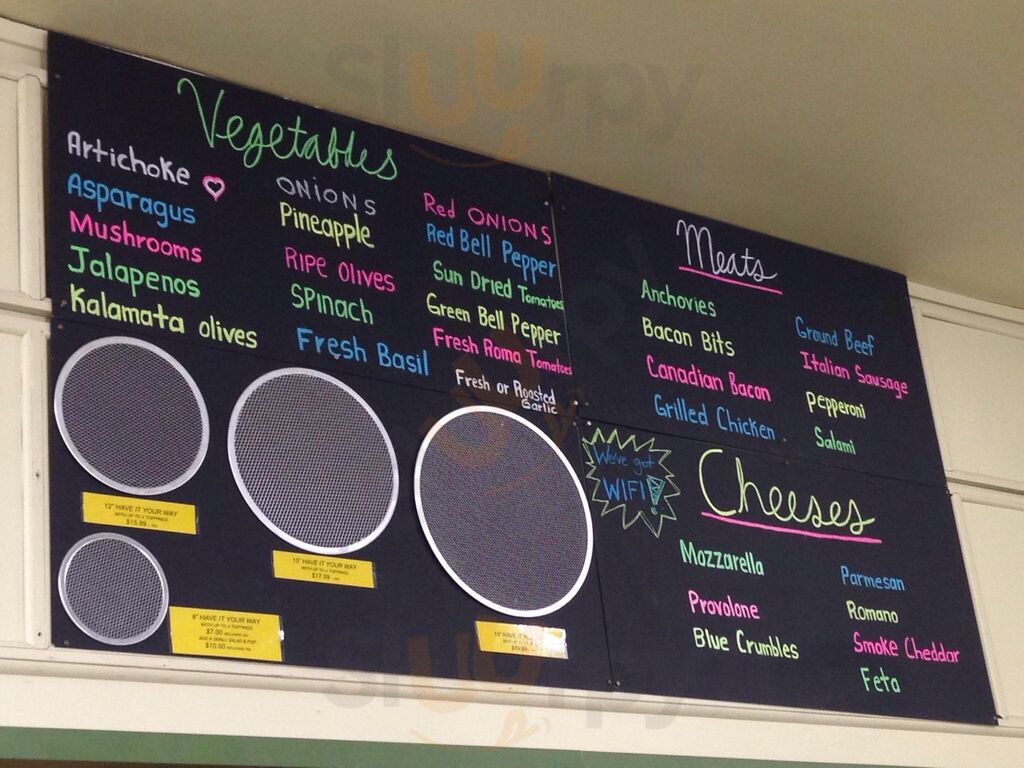 Vegetables
Artichoke
Asparagus
Mushrooms
Jalapenos
Kalamata olives
ONIONS
Pineapple
RIPE OLIVES
SPINACH
Fresh Basil
Red ONIONS
Red Bell Pepper
Sun Dried Tomatoes
Green Bell Pepper
Fresh Roma Tomatoes
Fresh or Roasted
Garlic
12" HAVE IT YOUR WAY
WITH UP TO 4 TOPPINGS
$15.99
HAVE IT YOUR WAY
WITH UP TO 4 TOPPINGS
$17.99
HAVE IT YOUR WAY
WITH UP TO 4 TOPPINGS
$7.00
ADD A SMALL SALAD & POP
$10.00
HAVE IT
Meats
Anchovies
Bacon Bits
Canadian Bacon
Grilled Chicken
Ground Beef
Italian Sausage
Pepperoni
Salami
We've got
WIFI!
Cheeses
Mozzarella
Provolone
Blue Crumbles
Parmesan
Romano
Smoke Cheddar
Feta
sluurpy
sluurpy